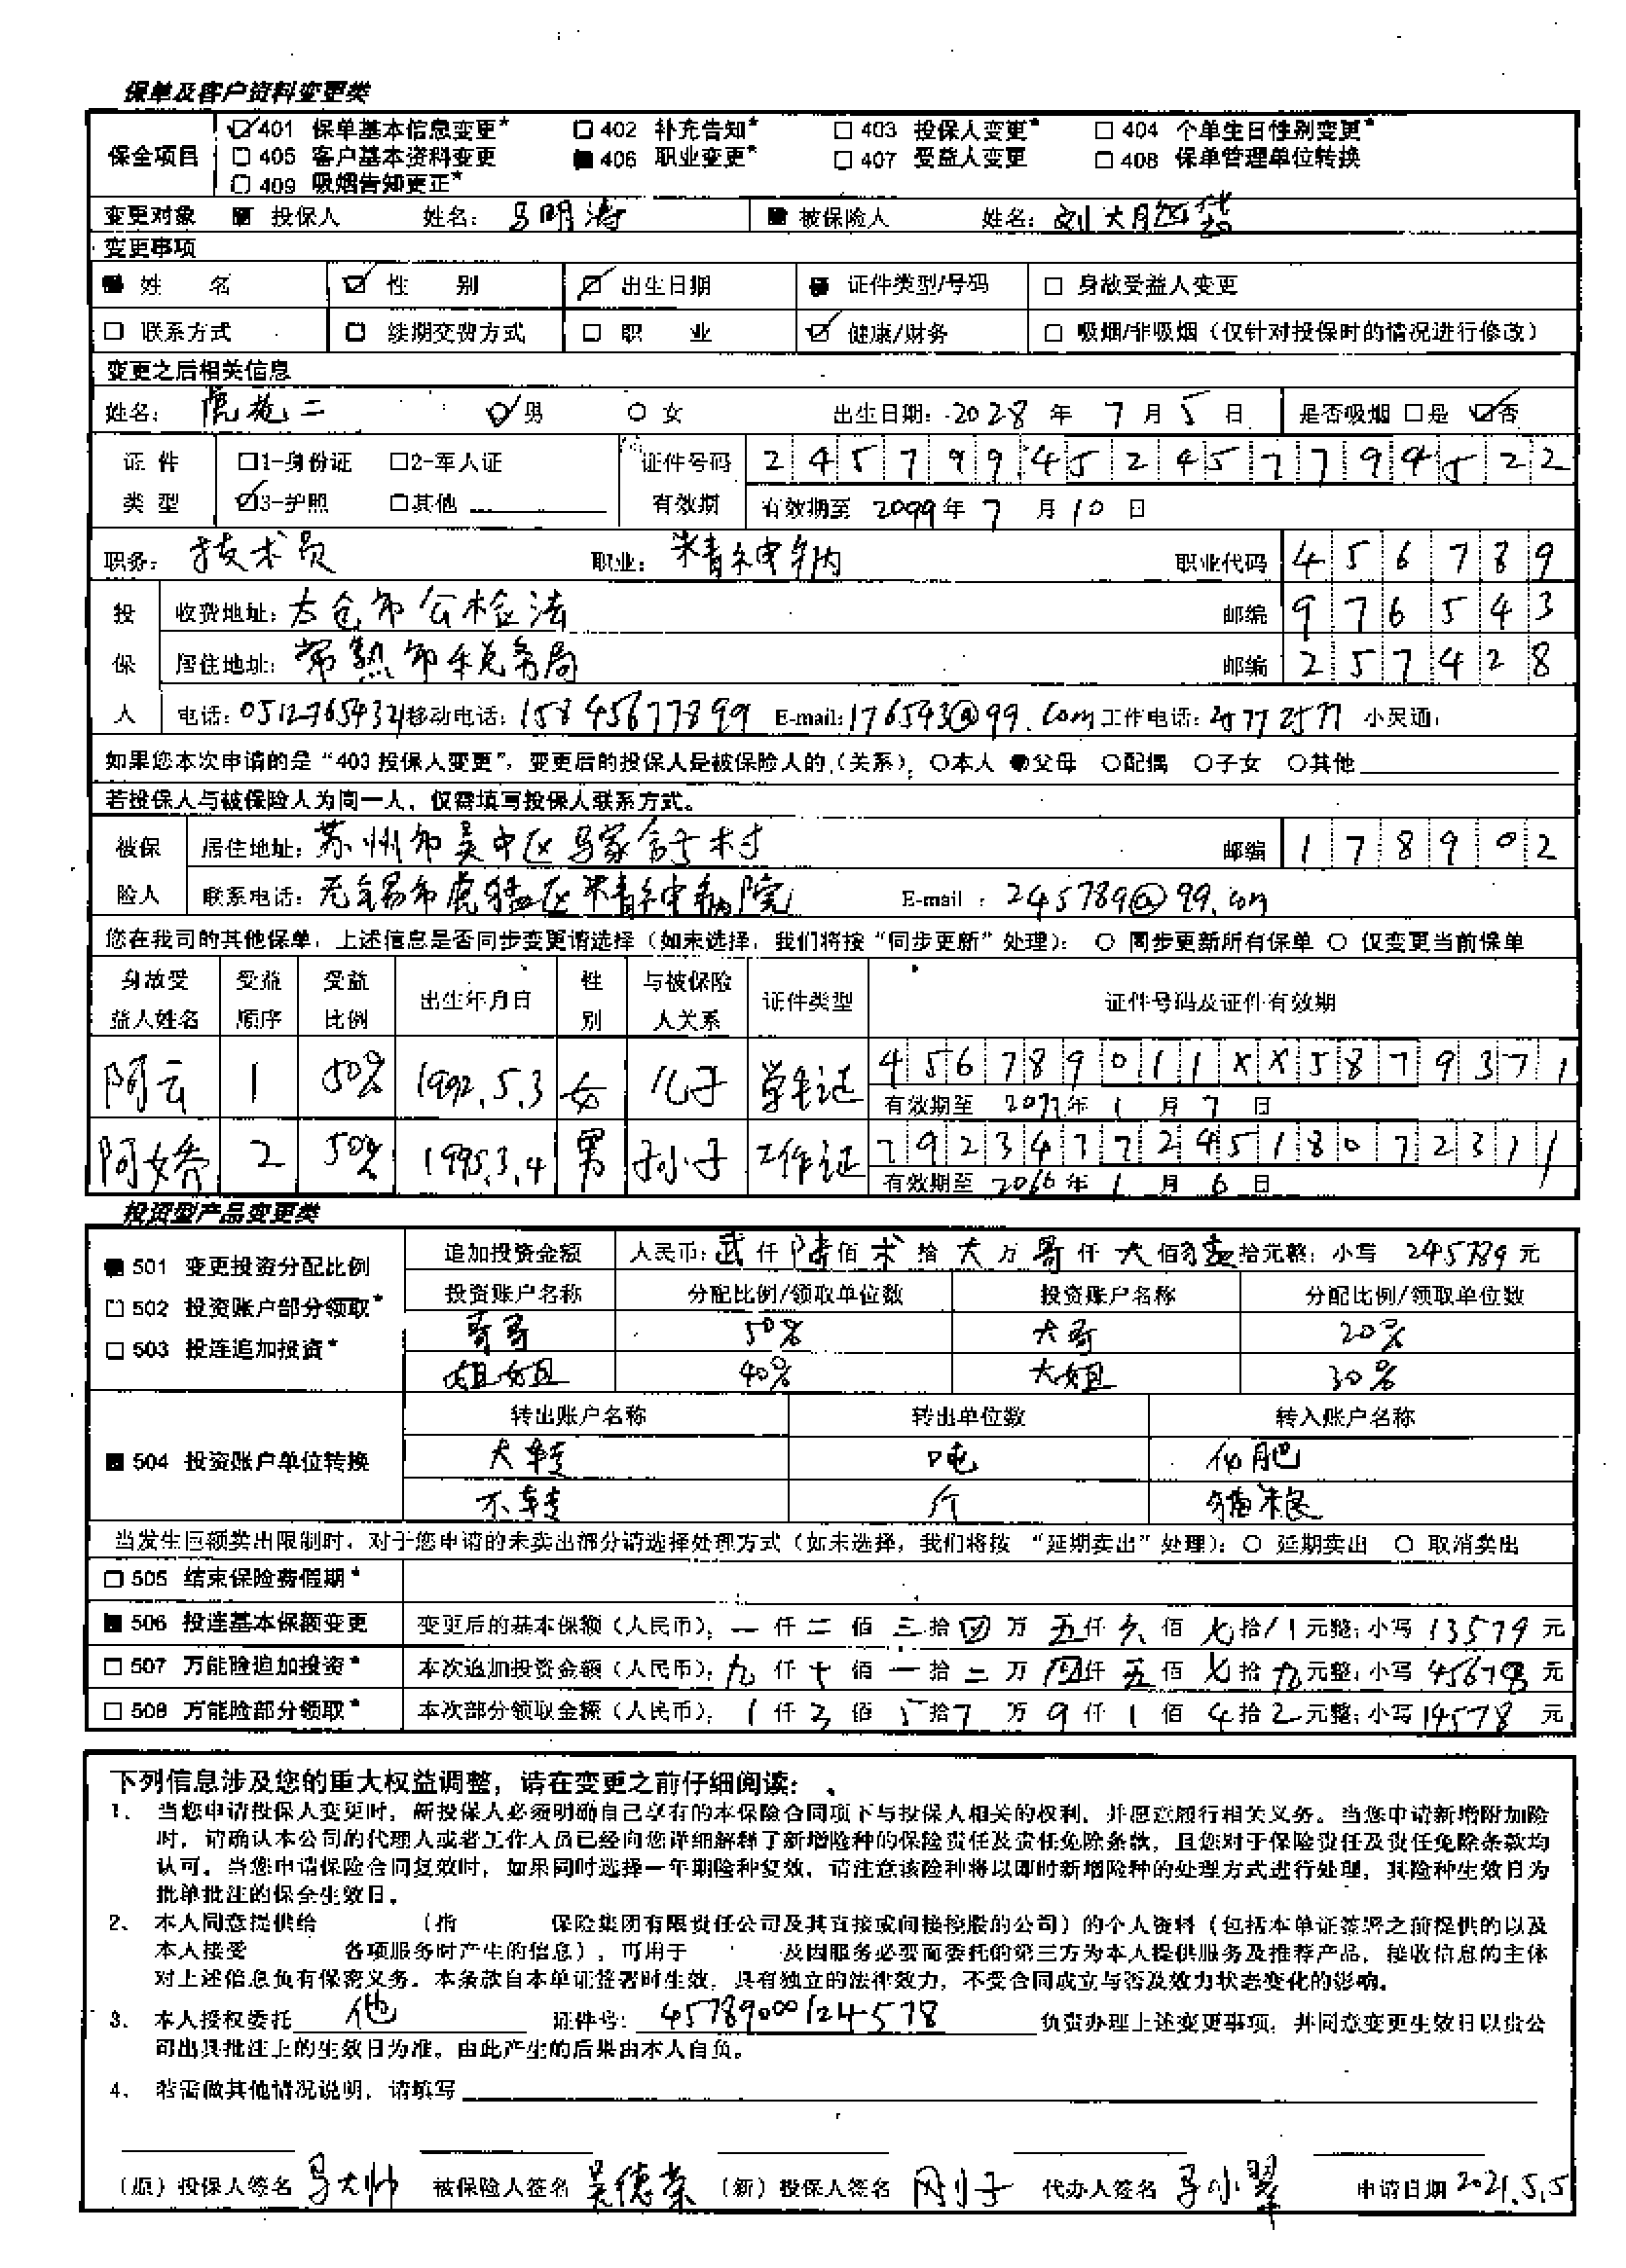 保单及客户资料变更类
保全项目 ☑401 保单基本信息变更* □402 补充告知* □403 投保人变更* □404 个单生日性别变更*
□405 客户基本资料变更 ■406 职业变更* □407 受益人变更 □408 保单管理单位转换
□409 吸烟告知更正*
变更对象 ■ 投保人 姓名: 马明涛 ■ 被保险人 姓名: 刘大
变更事项
■ 姓 名 ☑ 性 别 ☑ 出生日期 ■ 证件类型/号码 □ 身故受益人变更
□ 联系方式 □ 续期交费方式 □ 职 业 ☑ 健康/财务 □ 吸烟/非吸烟（仅针对投保时的情况进行修改）
变更之后相关信息
姓名: 二 ☑男 ○ 女 出生日期: 2028 年 7 月 5 日 是否吸烟 □是 ☑否
证件类型 □1-身份证 □2-军人证 证件号码 2457994524577994522
☑3-护照 □其他 有效期 有效期至 2099年 7 月 10 日
职务: 技术员 职业: 精神病 职业代码 456789
投保人 收费地址: 太仓市公检法 邮编 976543
居住地址: 常熟市税务局 邮编 257428
电话: 05127654321 移动电话: 15845677899 E-mail: 176543@99.com 工作电话: 2577 2577 小灵通:
如果您本次申请的是“403 投保人变更”，变更后的投保人是被保险人的（关系）: ○本人 ●父母 ○配偶 ○子女 ○其他
若投保人与被保险人为同一人，仅需填写投保人联系方式。
被保险人 居住地址: 苏州市吴中区马家舍子村 邮编 178902
联系电话: 无锡市虎猛区精神病院 E-mail: 245789@99.com
您在我司的其他保单，上述信息是否同步变更请选择（如未选择，我们将按“同步更新”处理）: ○ 同步更新所有保单 ○ 仅变更当前保单
身故受益人姓名 受益顺序 受益比例 出生年月日 性别 与被保险人关系 证件类型 证件号码及证件有效期
阿云 1 50% 1992.5.3 女 儿子 学生证 456789011XX5879371
有效期至 2077年 1 月 7 日
阿娇 2 50% 1995.3.4 男 孙子 工作证 7923477245180723711
有效期至 2066年 1 月 6 日
投资型产品变更类
■ 501 变更投资分配比例 追加投资金额 人民币: 仟 陆 佰 术 拾 大 万 哥 仟 大 佰 拾元整: 小写 245789 元
□ 502 投资账户部分领取* 投资账户名称 分配比例/领取单位数 投资账户名称 分配比例/领取单位数
□ 503 投连追加投资* 哥哥 50% 大哥 20%
姐姐 40% 大姐 30%
■ 504 投资账户单位转换 转出账户名称 转出单位数 转入账户名称
大转 吨 化肥
不转 斤 猫粮
当发生巨额卖出限制时，对于您申请的未卖出部分请选择处理方式（如未选择，我们将按 “延期卖出” 处理）: ○ 延期卖出 ○ 取消卖出
□ 505 结束保险费假期*
■ 506 投连基本保额变更 变更后的基本保额（人民币）: 一 仟 二 佰 三 拾 四 万 五 仟 六 佰 七 拾 八 元整: 小写 13579 元
□ 507 万能险追加投资* 本次追加投资金额（人民币）: 九 仟 十 佰 一 拾 二 万 四 仟 五 佰 七 拾 九 元整: 小写 456798 元
□ 508 万能险部分领取* 本次部分领取金额（人民币）: 1 仟 3 佰 5 拾 7 万 9 仟 1 佰 4 拾 2 元整: 小写 14578 元
下列信息涉及您的重大权益调整，请在变更之前仔细阅读:
1、 当您申请投保人变更时，新投保人必须明确自己享有的本保险合同项下与投保人相关的权利，并愿意履行相关义务。当您申请新增附加险
时，请确认本公司的代理人或者工作人员已经向您详细解释了新增险种的保险责任及责任免除条款，且您对于保险责任及责任免除条款均
认可。当您申请保险合同复效时，如果同时选择一年期险种复效，请注意该险种将以即时新增险种的处理方式进行处理，其险种生效日为
批单批注的保全生效日。
2、 本人同意提供给 （指 保险集团有限责任公司及其直接或间接控股的公司）的个人资料（包括本单证签署之前提供的以及
本人接受 各项服务时产生的信息），可用于 及因服务必要而委托的第三方为本人提供服务及推荐产品，接收信息的主体
对上述信息负有保密义务。本条款自本单证签署时生效，具有独立的法律效力，不受合同成立与否及效力状态变化的影响。
3、 本人授权委托 他 证件号: 4578900124578 负责办理上述变更事项，并同意变更生效日以贵公
司出具批注上的生效日为准。由此产生的后果由本人自负。
4、 若需做其他情况说明，请填写
（原）投保人签名 马大帅 被保险人签名 吴德荣 （新）投保人签名 刚子 代办人签名 马小翠 申请日期 2021.5.5